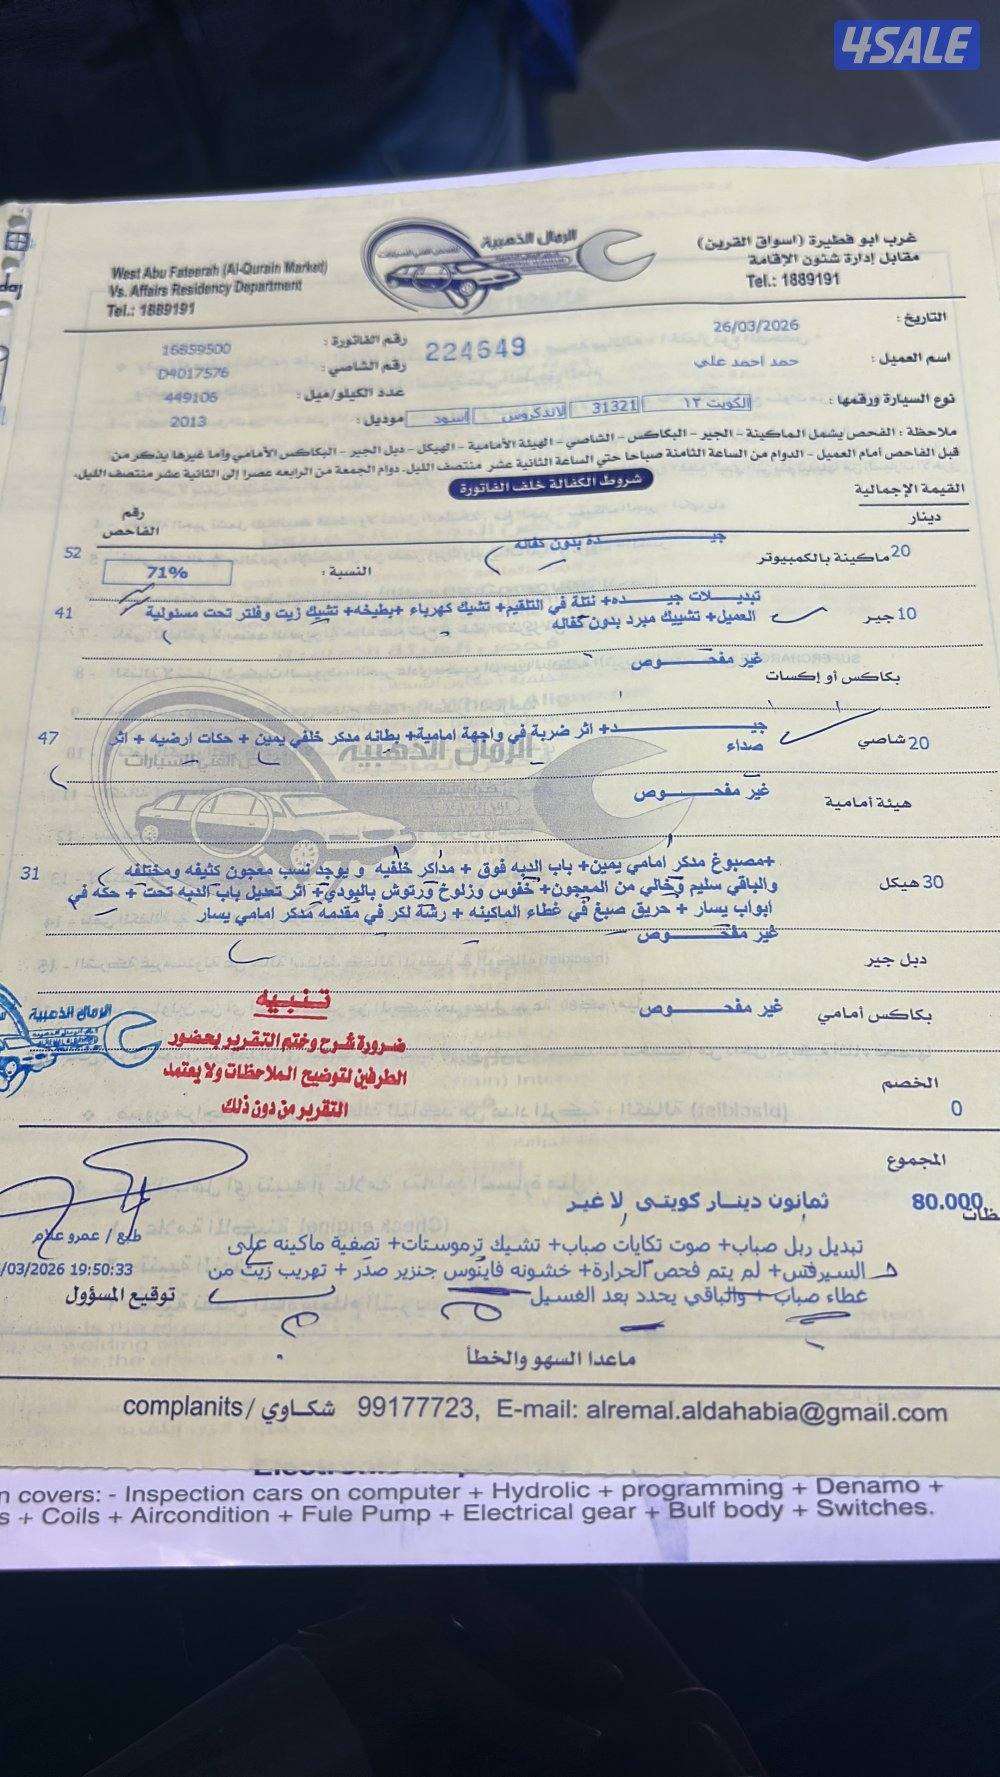 4SALE
غرب ابو فطيرة (اسواق القرين)
مقابل إدارة شئون الإقامة
Tel.: 1889191
الرمال الذهبية
West Abu Fateerah (Al-Qurain Market)
Vs. Affairs Residency Department
Tel.: 1889191
التاريخ : 26/03/2026
رقم الفاتورة : 16859500
224649
اسم العميل : حمد احمد علي
رقم الشاصي : D4017576
نوع السيارة ورقمها : الكويت ١٢ 31321 لاندكروس اسود
عدد الكيلو/ميل : 449106
موديل : 2013
ملاحظة : الفحص يشمل الماكينة - الجير - البكاكس - الشاصي - الهيئة الأمامية - الهيكل - دبل الجير - البكاكس الأمامي وإما غيرها يذكر من
قبل الفاحص أمام العميل - الدوام من الساعة الثامنة صباحا حتي الساعة الثانية عشر منتصف الليل. دوام الجمعة من الرابعه عصرا إلى الثانية عشر منتصف الليل.
شروط الكفالة خلف الفاتورة
القيمة الإجمالية
دينار
رقم
الفاحص
20 ماكينة بالكمبيوتر
جيـــــده بدون كفاله
النسبة : 71%
52
10 جير
تبديـــلات جيـــده+ نتلة في التلقيم+ تشيك كهرباء +بطيخه+ تشيك زيت وفلتر تحت مسئولية
العميل+ تشييك مبرد بدون كفاله
41
بكاكس أو إكسات
غير مفحـــوص
20 شاصي
جيـــــد+ اثر ضربة في واجهة امامية+ بطانه مدكر خلفي يمين + حكات ارضيه + اثر
صداء
47
هيئة أمامية
غير مفحـــوص
30 هيكل
+مصبوغ مدكر امامي يمين+ باب الدبه فوق + مداكر خلفيه و يوجد نسب معجون كثيفه ومختلفه
والباقي سليم وخالي من المعجون+ خفوس وزلوخ ورتوش بالبودي+ اثر تعديل باب الدبه تحت + حكه في
ابواب يسار + حريق صبغ في غطاء الماكينه + رشة لكر في مقدمه مدكر امامي يسار
31
دبل جير
غير مفحـــوص
بكاكس أمامي
غير مفحـــوص
تنبيه
ضرورة شرح وختم التقرير بحضور
الطرفين لتوضيح الملاحظات ولا يعتمد
التقرير من دون ذلك
الرمال الذهبية
الخصم
0
المجموع
80.000
ثمانون دينار كويتى لا غير
تبديل ربل صباب+ صوت تكايات صباب+ تشيك ترموستات+ تصفية ماكينه على
السيرفس+ لم يتم فحص الحرارة+ خشونه فاينوس جنزير صدر + تهريب زيت من
غطاء صباب + والباقي يحدد بعد الغسيل
طبع / عمرو علام
/03/2026 19:50:33
توقيع المسؤول
ماعدا السهو والخطأ
complanits / شكاوي 99177723, E-mail: alremal.aldahabia@gmail.com
n covers: - Inspection cars on computer + Hydrolic + programming + Denamo +
s + Coils + Aircondition + Fule Pump + Electrical gear + Bulf body + Switches.